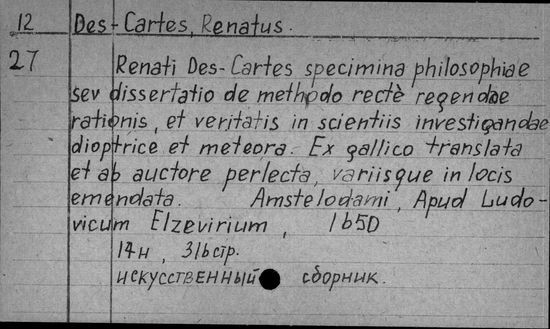 12 Des-Cartes, Renatus.
27 Renati Des-Cartes specimina philosophiae
sev dissertatio de methodo rectè regendae
rationis, et veritatis in scientiis investigandae
dioptrice et meteora. Ex gallico translata
et ab auctore perlecta, variisque in locis
emendata. Amstelodami, Apud Ludo-
vicum Elzevirium, 1650
14н, 316 стр.
искусственный сборник.